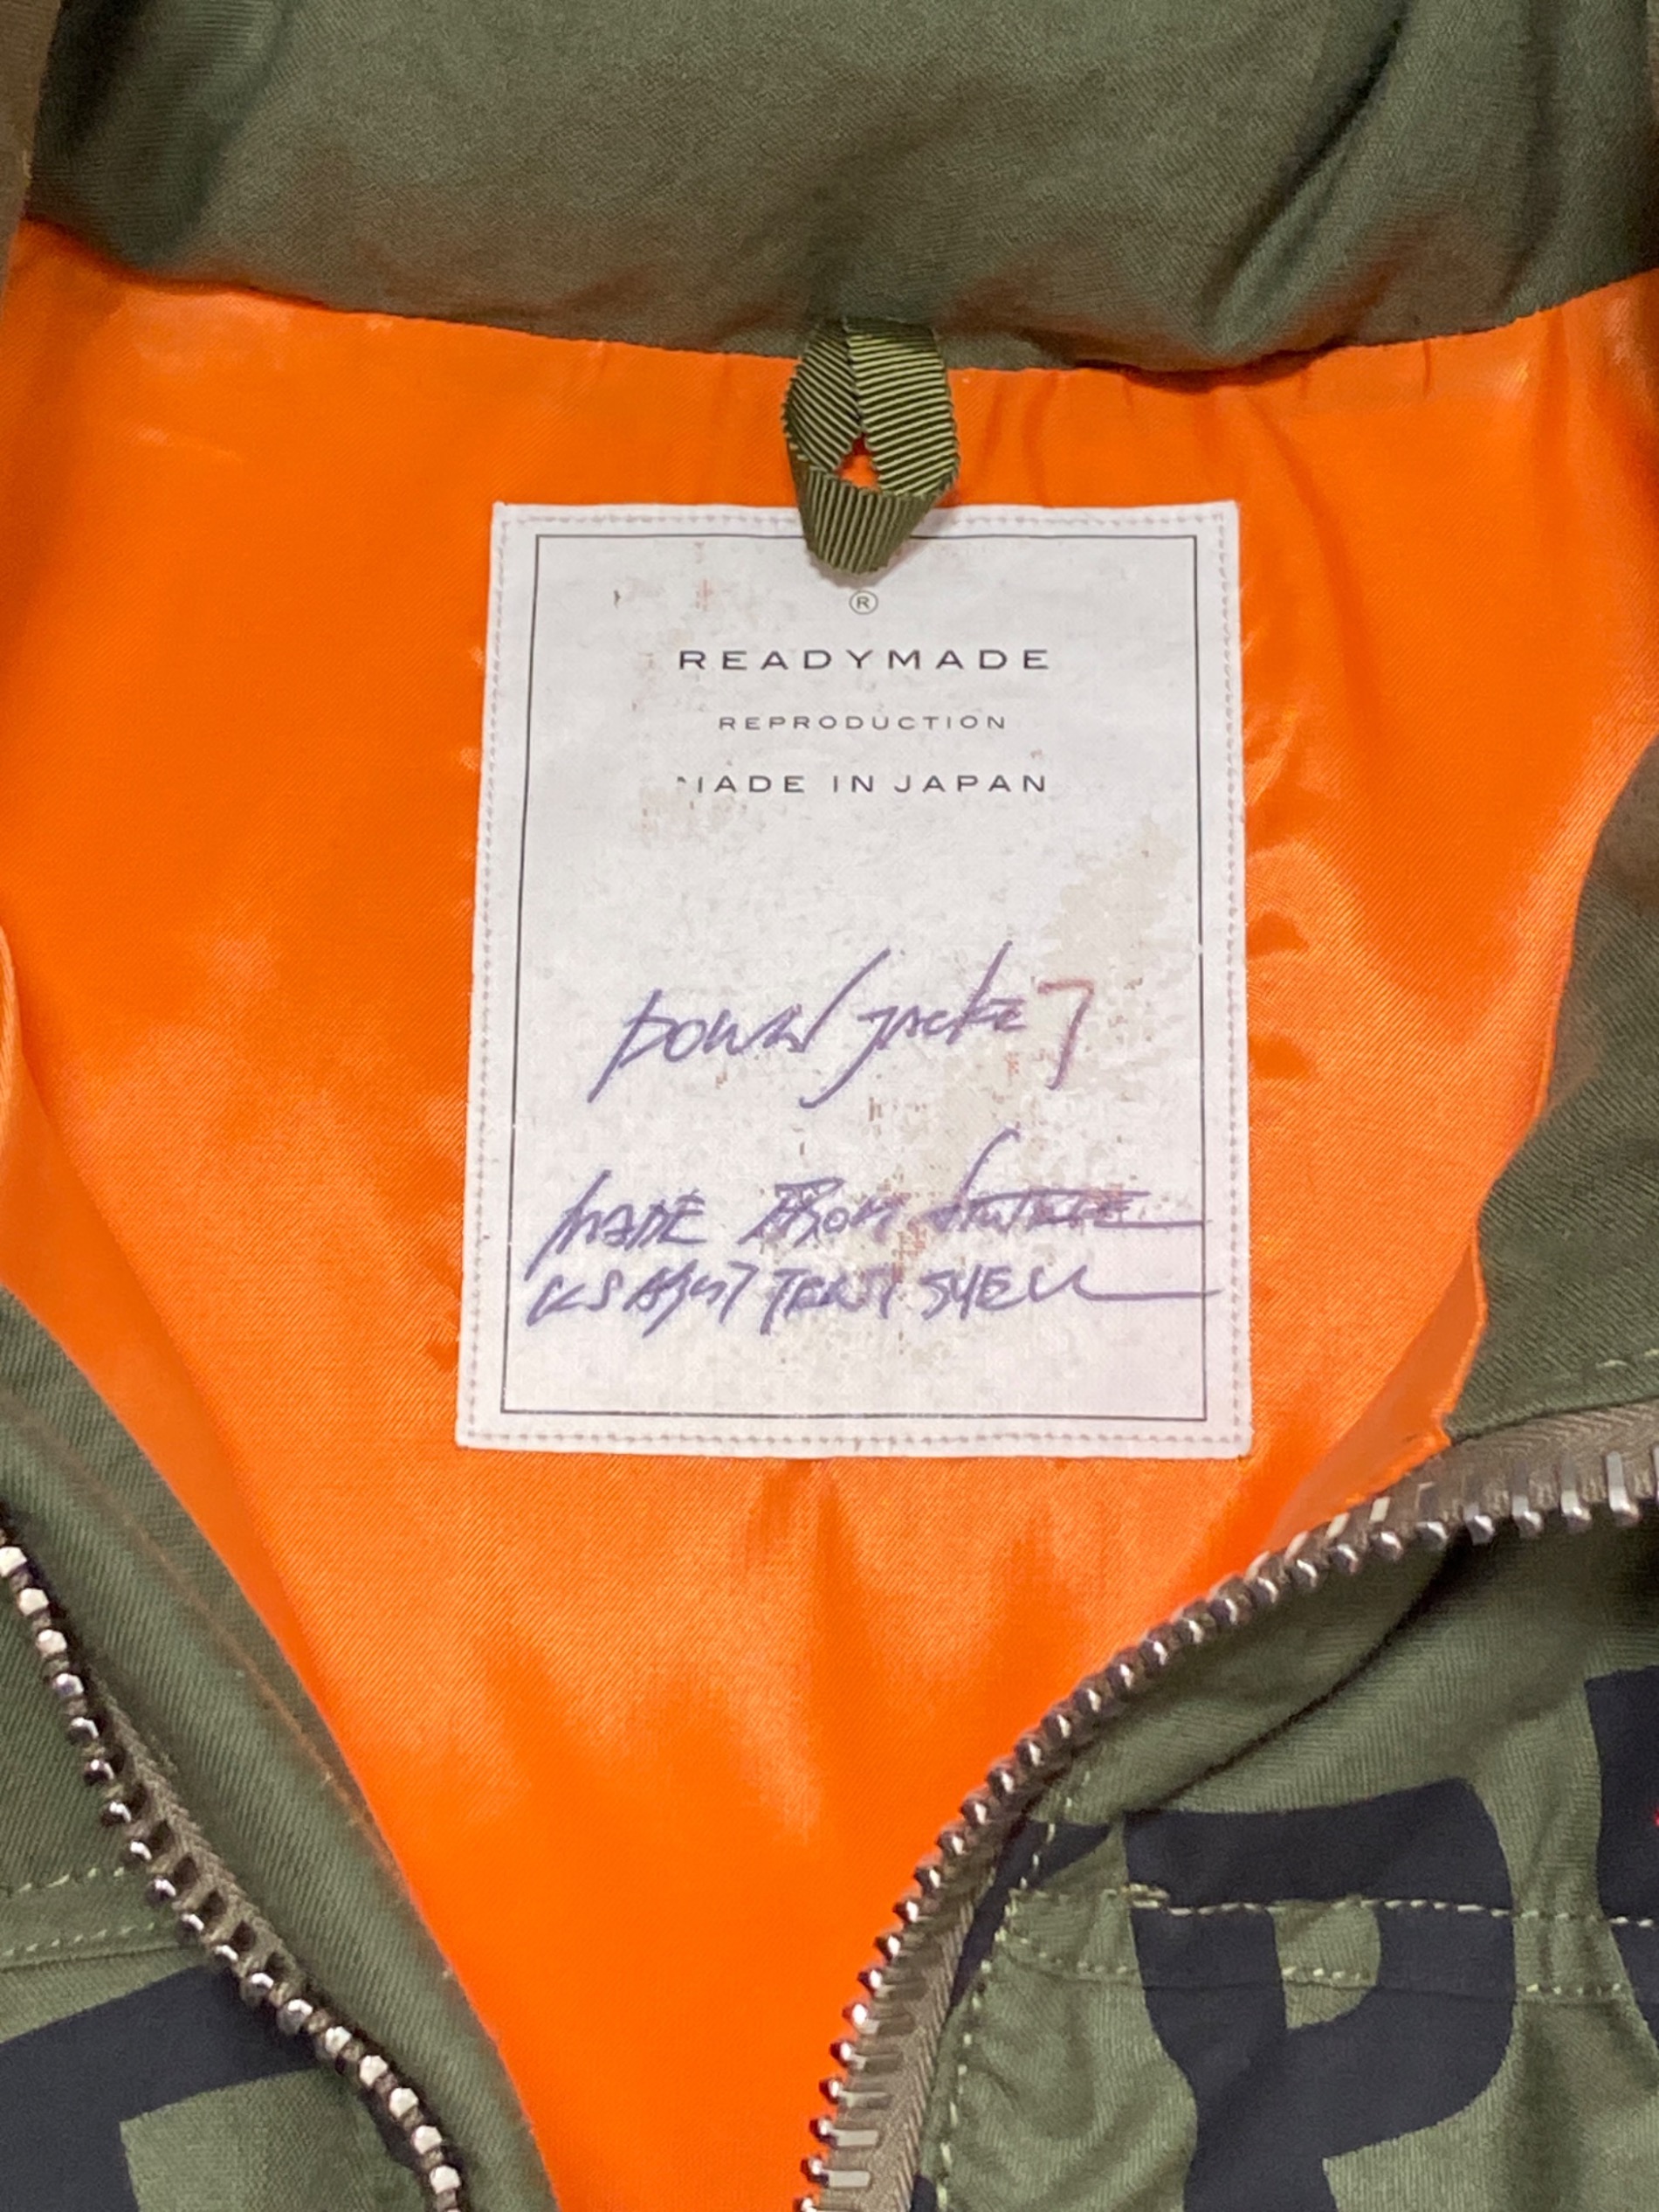 ®
READYMADE
REPRODUCTION
MADE IN JAPAN
DOWN JACKET
MADE FROM
US TENT SHELL
R